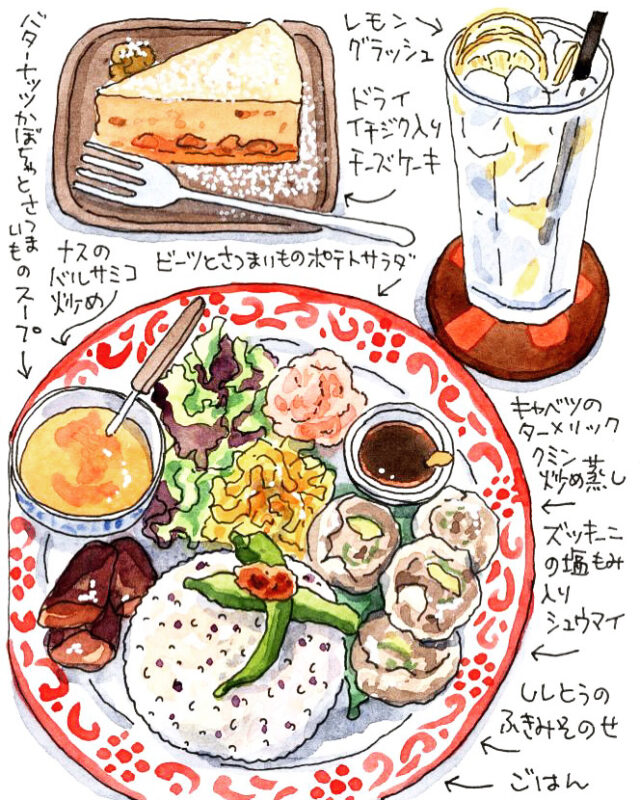 バターナッツかぼちゃとさつま
いものスープ
レモン
グラッシュ
ドライ
イチジク入り
チーズケーキ
ナスの
バルサミコ
炒め
ビーツとさつまいものポテトサラダ
キャベツの
ターメリック
クミン
炒め蒸し
ズッキーニ
の塩もみ
入り
シュウマイ
ししとうの
ふきみそのせ
ごはん